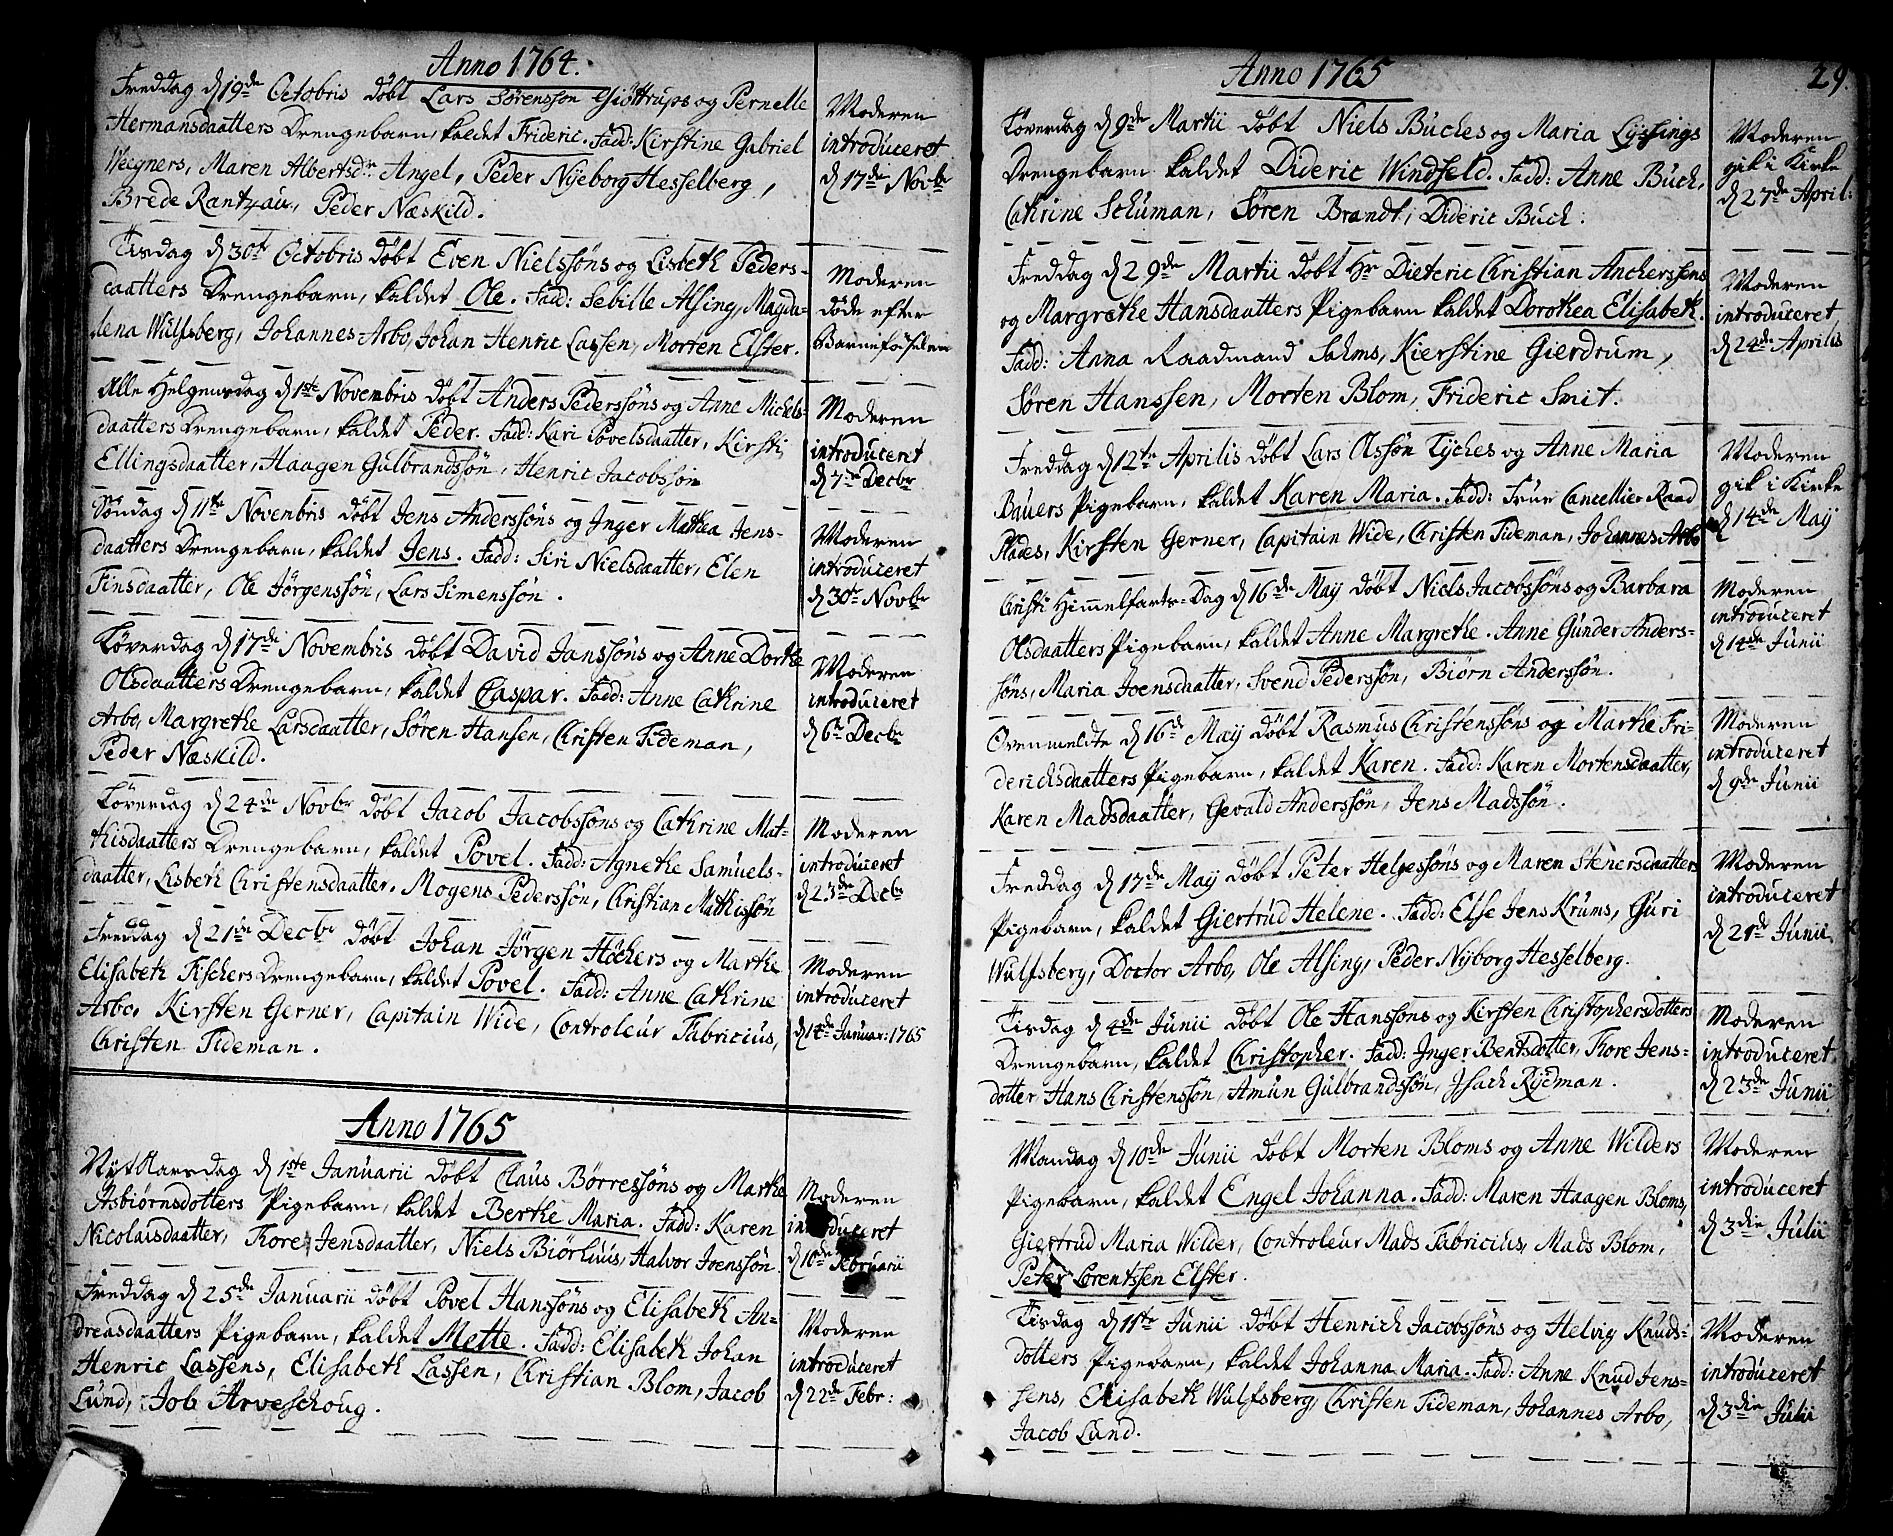 Anno 1764.
Freddag d 19de Octobris døbt Lars Sørensson Giøttrups og Pernelle
Hermansdaatters Drengebarn, kaldet Frideric. Fadd: Kirstine Gabriel
Weigners, Maren Albertsdr Angel, Peder Nyeborg Hesselberg,
Brede Rantzau, Peder Næskild.
Moderen
introduceret
d 17de Novbr
Tisdag d 30te Octobris døbt Even Nielssøns og Lisbeth Peders-
daatters Drengebarn, kaldet Ole. Fadd: Sebille Alsing, Magda-
lena Wulfsberg, Johannes Arbo, Johan Henric Lassen, Morten Elster.
Moderen
døde efter
Barnefødselen
Alle Helgensdag d 1ste Novembris døbt Anders Pederssøns og Anne Michels-
daatters Drengebarn, kaldet Peder. Fadd: Kari Povelsdaatter, Kirsti
Ellingsdaatter, Haagen Gulbrandssøn, Henric Jacobssøn
Moderen
introduceret
d 7de Decbr
Søndag d 11te Novembris døbt Jens Anderssøns og Inger Mathea Jens-
daatters Drengebarn, kaldet Jens. Fadd: Siri Nielsdaatter, Elen
Finsdaatter, Ole Jørgenssøn, Lars Simenssøn.
Moderen
introduceret
d 30te Novbr
Løverdag d 17de Novembris døbt David Janssøns og Anne Dorthe
Olsdaatters Drengebarn, kaldet Caspar. Fadd: Anne Cathrine
Arbo, Margrethe Larsdaatter, Søren Hansen, Christen Tideman,
Peder Næskild.
Moderen
introduceret
d 6te Decbr
Løverdag d 24de Novbr døbt Jacob Jacobssøns og Cathrine Mat-
thisdaatters Drengebarn, kaldet Povel. Fadd: Agnethe Samuels-
daatter, Lisbeth Christensdaatter, Mogens Pederssøn, Christian Mathissøn
Moderen
introduceret
d 23de Decbr
Freddag d 21de Decbr døbt Johan Jørgen Høckers og Marthe
Elisabeth Fischers Drengebarn, kaldet Povel. Fadd: Anne Cathrine
Arbo, Kirsten Gerner, Capitain Wide, Controleur Fabricius,
Christen Tideman.
Moderen
introduceret
d 14de Januar: 1765
Anno 1765
Nyt Aarsdag d 1ste Januarii døbt Claus Børressøns og Marthe
Asbiørnsdotters Pigebarn, kaldet Berthe Maria. Fadd: Karen
Nicolaisdaatter, Thore Jensdaatter, Niels Biørhuus, Halvor Joenssøn
Moderen
introduceret
d 10de Februarii
Freddag d 25de Januarii døbt Povel Hanssøns og Elisabeth An-
dreasdaatters Pigebarn, kaldet Mette. Fadd: Elisabeth Johan
Henric Lassens, Elisabeth Lassen, Christian Blom, Jacob
Lund, Job Arveschoug.
Moderen
introduceret
d 22de Febr:
Anno 1765
29
Løverdag d 9de Martii døbt Niels Buches og Maria Lyssings
Drengebarn kaldet Dideric Windfeld. Fadd: Anne Buch,
Cathrine Schuman, Søren Brandt, Dideric Buch:
Moderen
gik i Kirke
d 27de April:
Freddag d 29de Martii døbt Hr Dieteric Christian Ancherssens
og Margrethe Hansdaatters Pigebarn kaldet Dorothea Elisabeth.
Fadd: Anna Raadmand Sahms, Kierstine Gierdrum,
Søren Hanssen, Morten Blom, Frideric Smit.
Moderen
introduceret
d 24de Aprilis
Freddag d 12te Aprilis døbt Lars Olssøn Tyches og Anne Maria
Bauers Pigebarn, kaldet Karen Maria. Fadd: Frue Cancellie Raad
Blades, Kirsten Gerner, Capitain Wide, Christen Tideman, Johannes Arbo
Moderen
gik i Kirke
d 14de Maÿ
Christi Himmelfarts-Dag d 16de Maÿ døbt Niels Jacobssøns og Barbara
Olsdaatters Pigebarn, kaldet Anne Margrethe. Anne Gunder Anders-
søns, Maria Joensdaatter, Svend Pederssøn, Biørn Anderssøn.
Moderen
introduceret
d 14de Junii
Ovenmeldte d 16de Maÿ døbt Rasmus Christenssøns og Marthe Fri-
derichsdaatters Pigebarn, kaldet Karen. Fadd: Karen Mortensdaatter,
Karen Madsdaatter, Gevald Anderssøn, Jens Madssøn.
Moderen
introduceret
d 9de Junii
Freddag d 17de Maÿ døbt Peter Helgessøns og Maren Stenersdaatters
Pigebarn, kaldet Giertrud Helene. Fadd: Else Jens Krums, Guri
Wulfsberg, Doctor Arbo, Ole Alsing, Peder Nyborg Hesselberg.
Moderen
introduceret
d 21de Junii
Tisdag d 4de Junii døbt Ole Hanssøns og Kirsten Christophersdotters
Drengebarn, kaldet Christopher. Fadd: Inger Bentsdotter, Thore Jens-
dotter, Hans Christenssøn, Amun Gulbrandssøn, Isach Rydman.
Moderen
introduceret
d 23de Junii
Mandag d 10de Junii døbt Morten Bloms og Anne Wilders
Pigebarn, kaldet Engel Johanna. Fadd: Maren Haagen Bloms,
Giertrud Maria Wilder, Controleur Mads Fabricius, Mads Blom,
Peter Lorentssen Elster.
Moderen
introduceret
d 3die Julii
Tisdag d 11te Junii døbt Henrich Jacobssøns og Helvig Knuds-
dotters Pigebarn, kaldet Johanna Maria. Fadd: Anne Knud Jens-
sens, Elisabeth Wulfsberg, Christen Tideman, Johannes Arbo,
Jacob Lund.
Moderen
introduceret
d 3die Julii